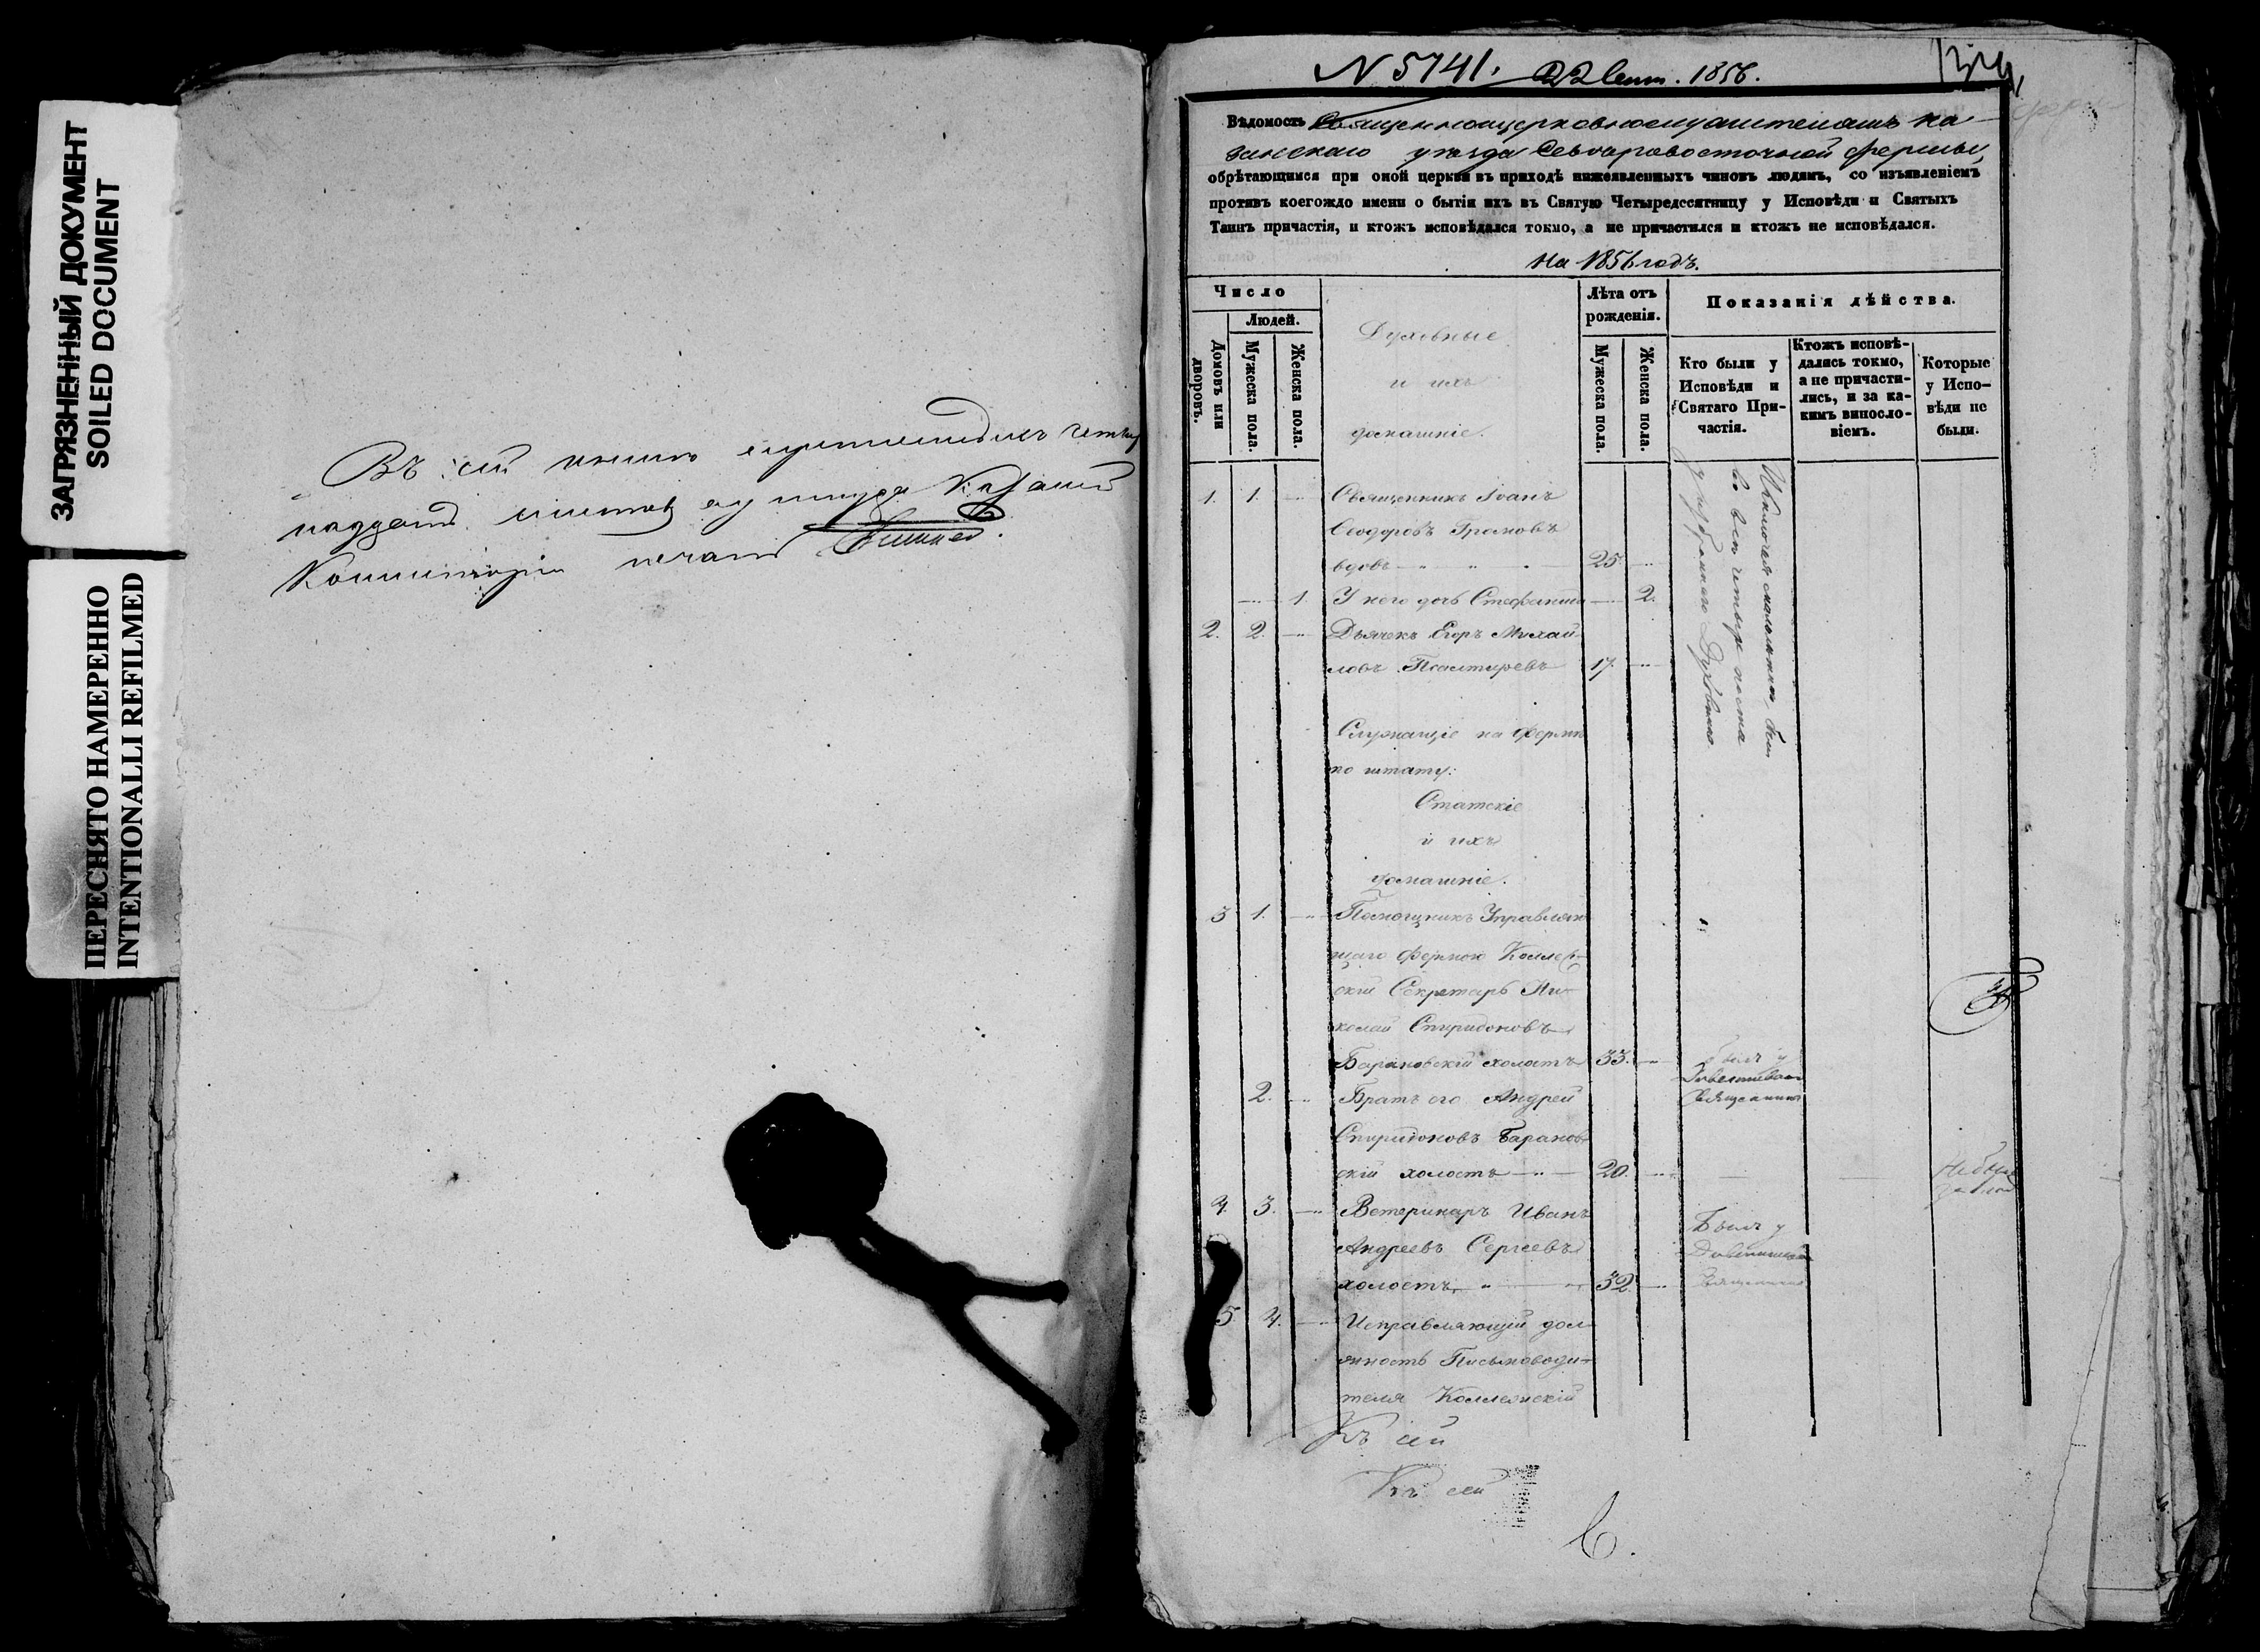 ЗАГРЯЗНЕННЫЙ ДОКУМЕНТ
SOILED DOCUMENT
ПЕРЕСНЯТО НАМЕРЕННО
INTENTIONALLI REFILMED
Въ сей книге
листовъ
Консисторіи печати
N 5741. 22 Сент. 1856.
Вѣдомость Священноцерковнослужителямъ Ка-
занскаго уѣзда Сѣверовосточной фермы,
обрѣтающимся при оной церкви въ приходѣ нижеявленныхъ чиновъ людямъ, со изъявленіемъ
противъ коегождо имени о бытіи ихъ въ Святую Четыредесятницу у Исповѣди и Святыхъ
Таинъ причастія, и ктожъ исповѣдался токмо, а не причастился и ктожъ не исповѣдался.
На 1856 годъ.
Число
Людей.
Домовъ или дворовъ.
Мужеска пола.
Женска пола.
Духовные
и ихъ
домашніе.
Лѣта отъ рожденія.
Мужеска пола.
Женска пола.
Показанія дѣйства.
Кто были у Исповѣди и Святаго При-частія.
Ктожъ исповѣ-дались токмо, а не причасти-лись, и за ка-кимъ винносло-віемъ.
Которые у Испо-вѣди не были.
1. 1. Священникъ Іоанъ
Ѳеодоровъ Громовъ
вдовъ 25.
1. У него дочь Стефанида 2.
2. 2. Дьячекъ Егоръ Михай-
ловъ Псалтиревъ 17.
во все четыре поста
Служащіе на фермѣ
по штату:
Статскіе
и ихъ
домашніе.
3 1. Помощникъ Управляю-
щаго фермою Коллеж-
скій Секретарь Ни-
колай Спиридоновъ
Барановскій холостъ 33.
Былъ у
Священника
2. Братъ его Андрей
Спиридоновъ Баранов-
скій холостъ 20.
Не былъ
4. 3. Ветеринаръ Иванъ
Андреевъ Сергеевъ
холостъ 32.
Былъ у
Священника
5 4. Исправляющій дол-
жность Письмоводи-
теля Коллежскій
Къ сей
Къ сей
С.